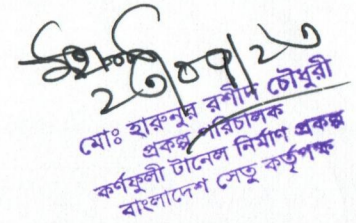 ২৩/০৭/২৩
মোঃ হারুনুর রশীদ চৌধুরী
প্রকল্প পরিচালক
কর্ণফুলী টানেল নির্মাণ প্রকল্প
বাংলাদেশ সেতু কর্তৃপক্ষ